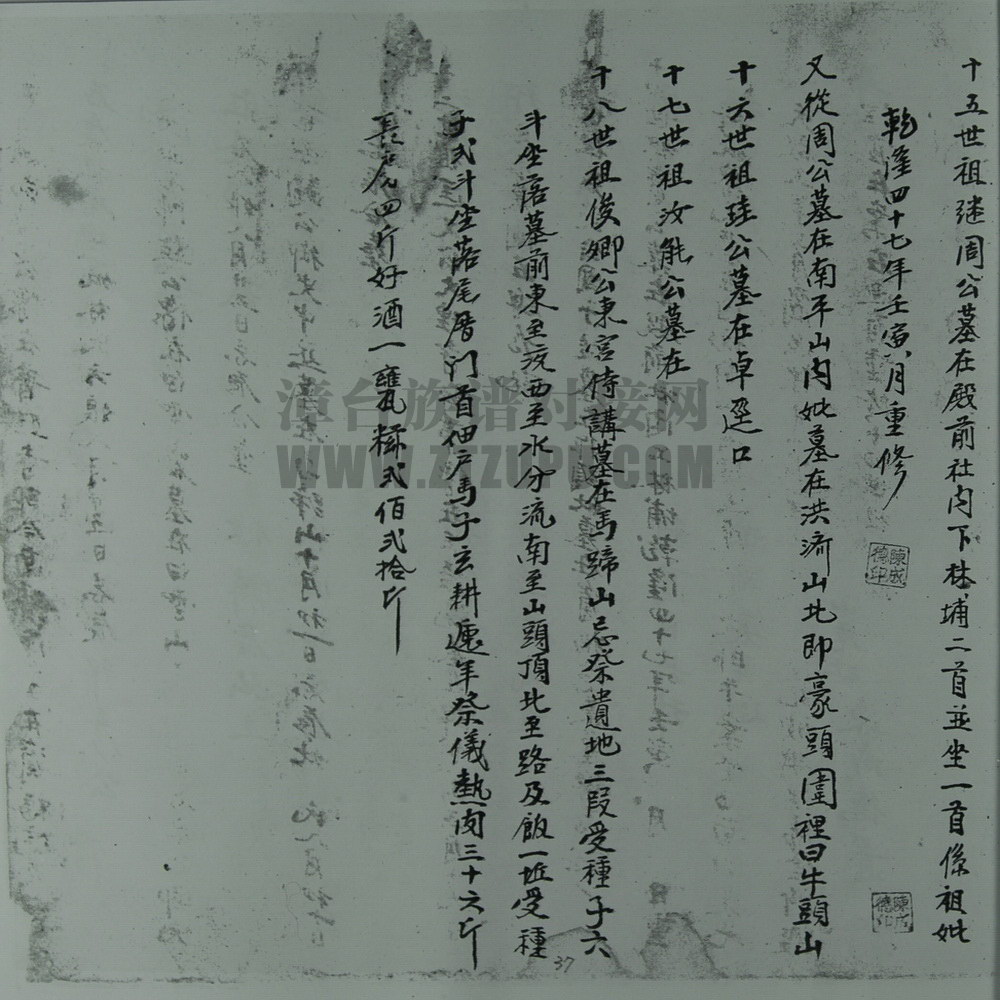 十五世祖继周公墓在殿前社内下林埔二首並坐一首係祖妣
乾隆四十七年壬寅八月重修
陳成德印
陳成德印
又從周公墓在南平山内妣墓在洪济山北即豪頭圍裡曰牛頭山
十六世祖珪公墓在卓逕口
十七世祖汝能公墓在
十八世祖俊卿公東宮侍講墓在馬蹄山忌祭遺地三段受種子六
斗坐落墓前東至坑西至水分流南至山頭頂北至路及飯一坵受種
子弍斗坐落尾厝门首佃户馬子玄耕遞年祭儀熱肉三十六斤
四斤好酒一甕粿弍佰弍拾斤
37
漳台族谱对接网
WWW.ZTZUPU.COM